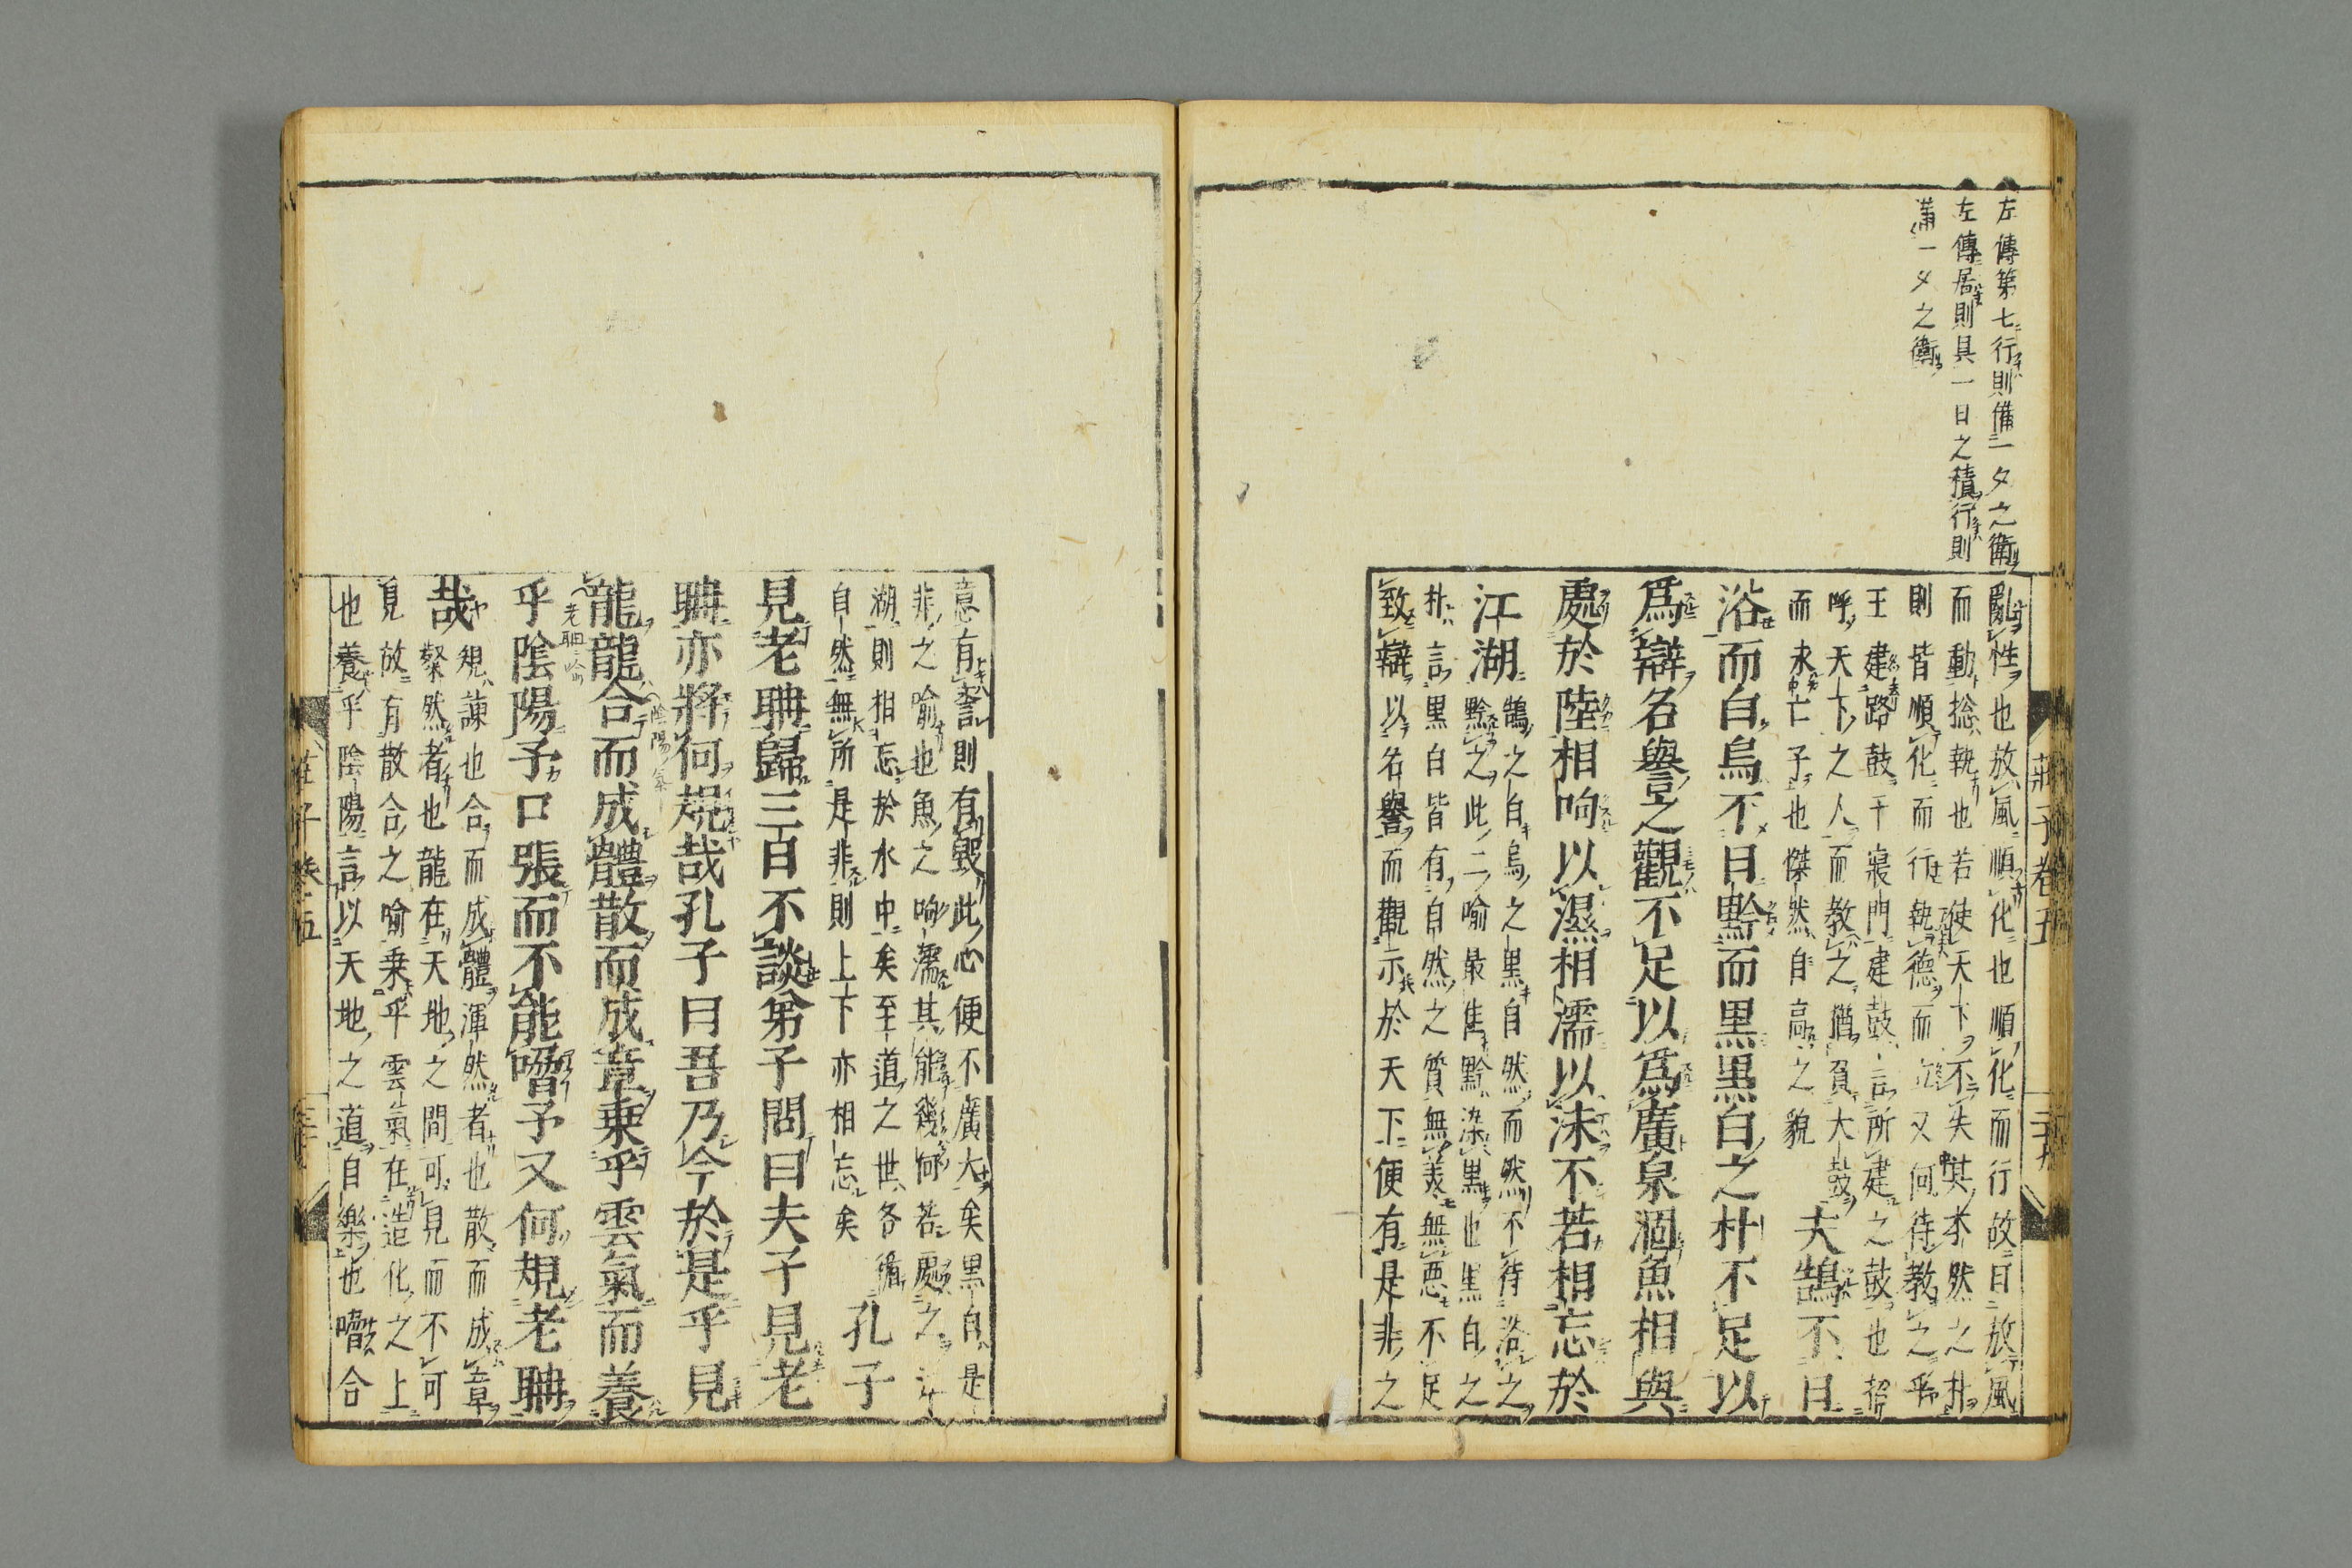 左傳第七行則備一夕之衛
左傳居則具一日之積行則
備一夕之衛
亂性也放風順化也順化而行故曰放風
而動捴執也若使天下不失其本然之朴
則皆順化而行執德而立又何待教之乎
王建路鼓于寢門建鼓言所建之鼓也招
呼天下之人而教之猶負大鼓
而求亡子也傑然自高之貌
夫鵠不日
浴而白烏不日黔而黒黒白之朴不足以
爲辯名譽之觀不足以爲廣泉涸魚相與
處於陸相呴以濕相濡以沫不若相忘於
江湖
鵠之白烏之黒自然而然不待浴之
黔之此二喻最佳黔染黒也黒白之
朴言黒白皆有自然之質無美無惡不足
致辯以名譽而觀示於天下便有是非之
莊子卷五
意有譽則有毀此心便不廣大矣黒白是
非之喻也魚之呴濡其能幾何若處之江
湖則相忘於水中矣至道之世各循
自然無所是非則上下亦相忘矣
孔子
見老聃歸三日不談弟子問曰夫子見老
聃亦將何規哉孔子曰吾乃今於是乎見
龍龍合而成體散而成章乗乎雲氣而養
乎陰陽予口張而不能嗋予又何規老聃
哉
規諫也合而成體渾然者也散而成章
粲然者也龍在天地之間可見而不可
見故有散合之喻乗乎雲氣在造化之上
也養乎陰陽言以天地之道自樂也嗋合
莊子卷五